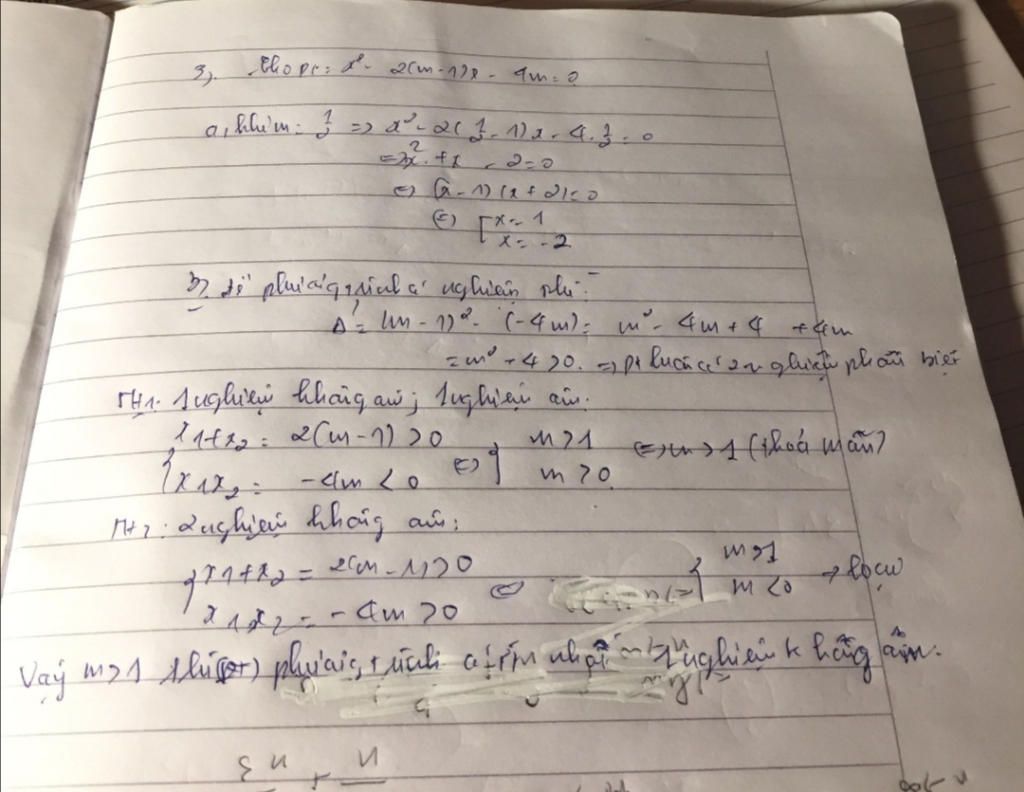 3, Cho pt: x² - 2(m-1)x - 4m = 0
a, khi m = 1/2 => x² - 2(1/2 - 1)x - 4.1/2 = 0
=> x² + x - 2 = 0
<=> (x - 1)(x + 2) = 0
<=> [ x = 1
x = -2
b, để phương trình có nghiệm thì:
Δ' = (m - 1)² - (-4m) = m² - 4m + 4 + 4m
= m² + 4 > 0. => pt luôn có 2 nghiệm phân biệt
TH1: 1 nghiệm không âm; 1 nghiệm âm:
{ x1 + x2 = 2(m - 1) > 0 <=> { m > 1 <=> m > 1 (thoả mãn)
x1x2 = -4m < 0 m > 0
TH2: 2 nghiệm không âm:
{ x1 + x2 = 2(m - 1) > 0 <=> { m > 1 → loại
x1x2 = -4m > 0 m < 0
Vậy m > 1 thì phương trình có ít nhất 1 nghiệm không âm.